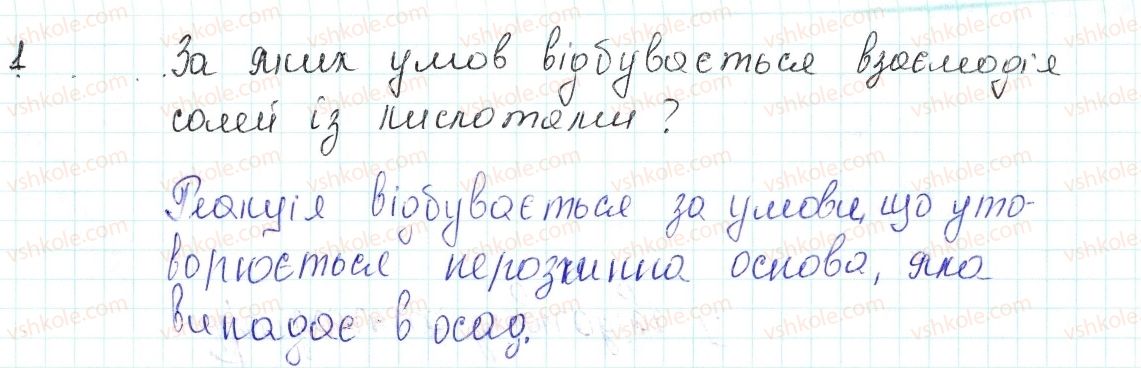 1. За яких умов відбувається взаємодія
солей із кислотами?
Реакція відбувається за умови, що уто-
ворюється нерозчинна основа, яка
випадає в осад.